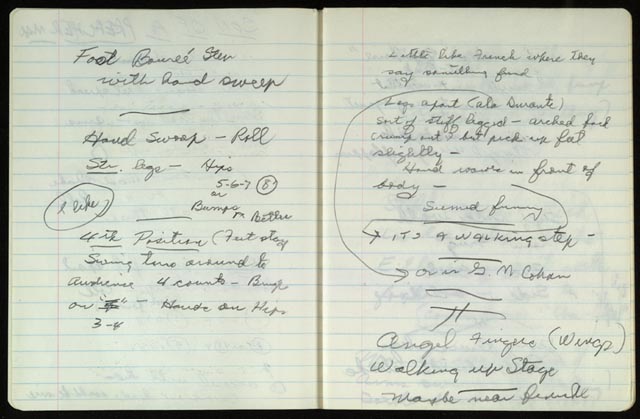 Foot Boureé Step
with hand sweep
Hand Sweep - Roll
Str. legs - Hips
5-6-7 8
or
Bumps Better
I like
4th Position (Feet stay
Swing Turn around to
Audience 4 counts - Bump
on - Hands on Hips
3-4
Little like French where they
say something
Legs apart (ala Durante)
sort of stiff legged - arched back
out ? but pick up feet
slightly -
Hand waves in front of
body -
Seemed funny
ITS A walking step -
or is G. M Cohan
Angel Fingers (Wings)
Walking up Stage
Maybe near finish